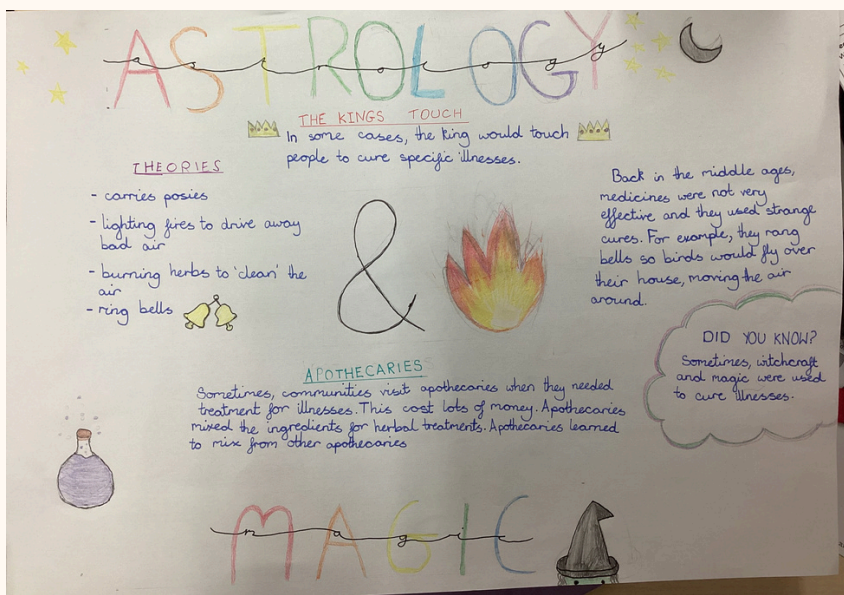 ASTROLOGY
astrology
THE KINGS TOUCH
In some cases, the king would touch
people to cure specific illnesses.
THEORIES
- carries posies
- lighting fires to drive away
bad air
- burning herbs to 'clean' the
air
- ring bells
&
Back in the middle ages,
medicines were not very
effective and they used strange
cures. For example, they rang
bells so birds would fly over
their house, moving the air
around.
DID YOU KNOW?
Sometimes, witchcraft
and magic were used
to cure illnesses.
APOTHECARIES
Sometimes, communities visit apothecaries when they needed
treatment for illnesses. This cost lots of money. Apothecaries
mixed the ingredients for herbal treatments. Apothecaries learned
to mix from other apothecaries
MAGIC
magic